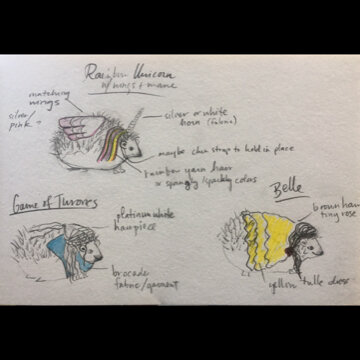 Rainbow Unicorn
w/ wings + mane
matching
wings
silver/
pink?
silver or white
horn (fabric)
maybe chin strap to hold in place
rainbow yarn hair
or spangly/sparkly colors
Game of Thrones
platinum white
hairpiece
brocade
fabric/garment
Belle
brown hair
tiny rose
yellow tulle dress